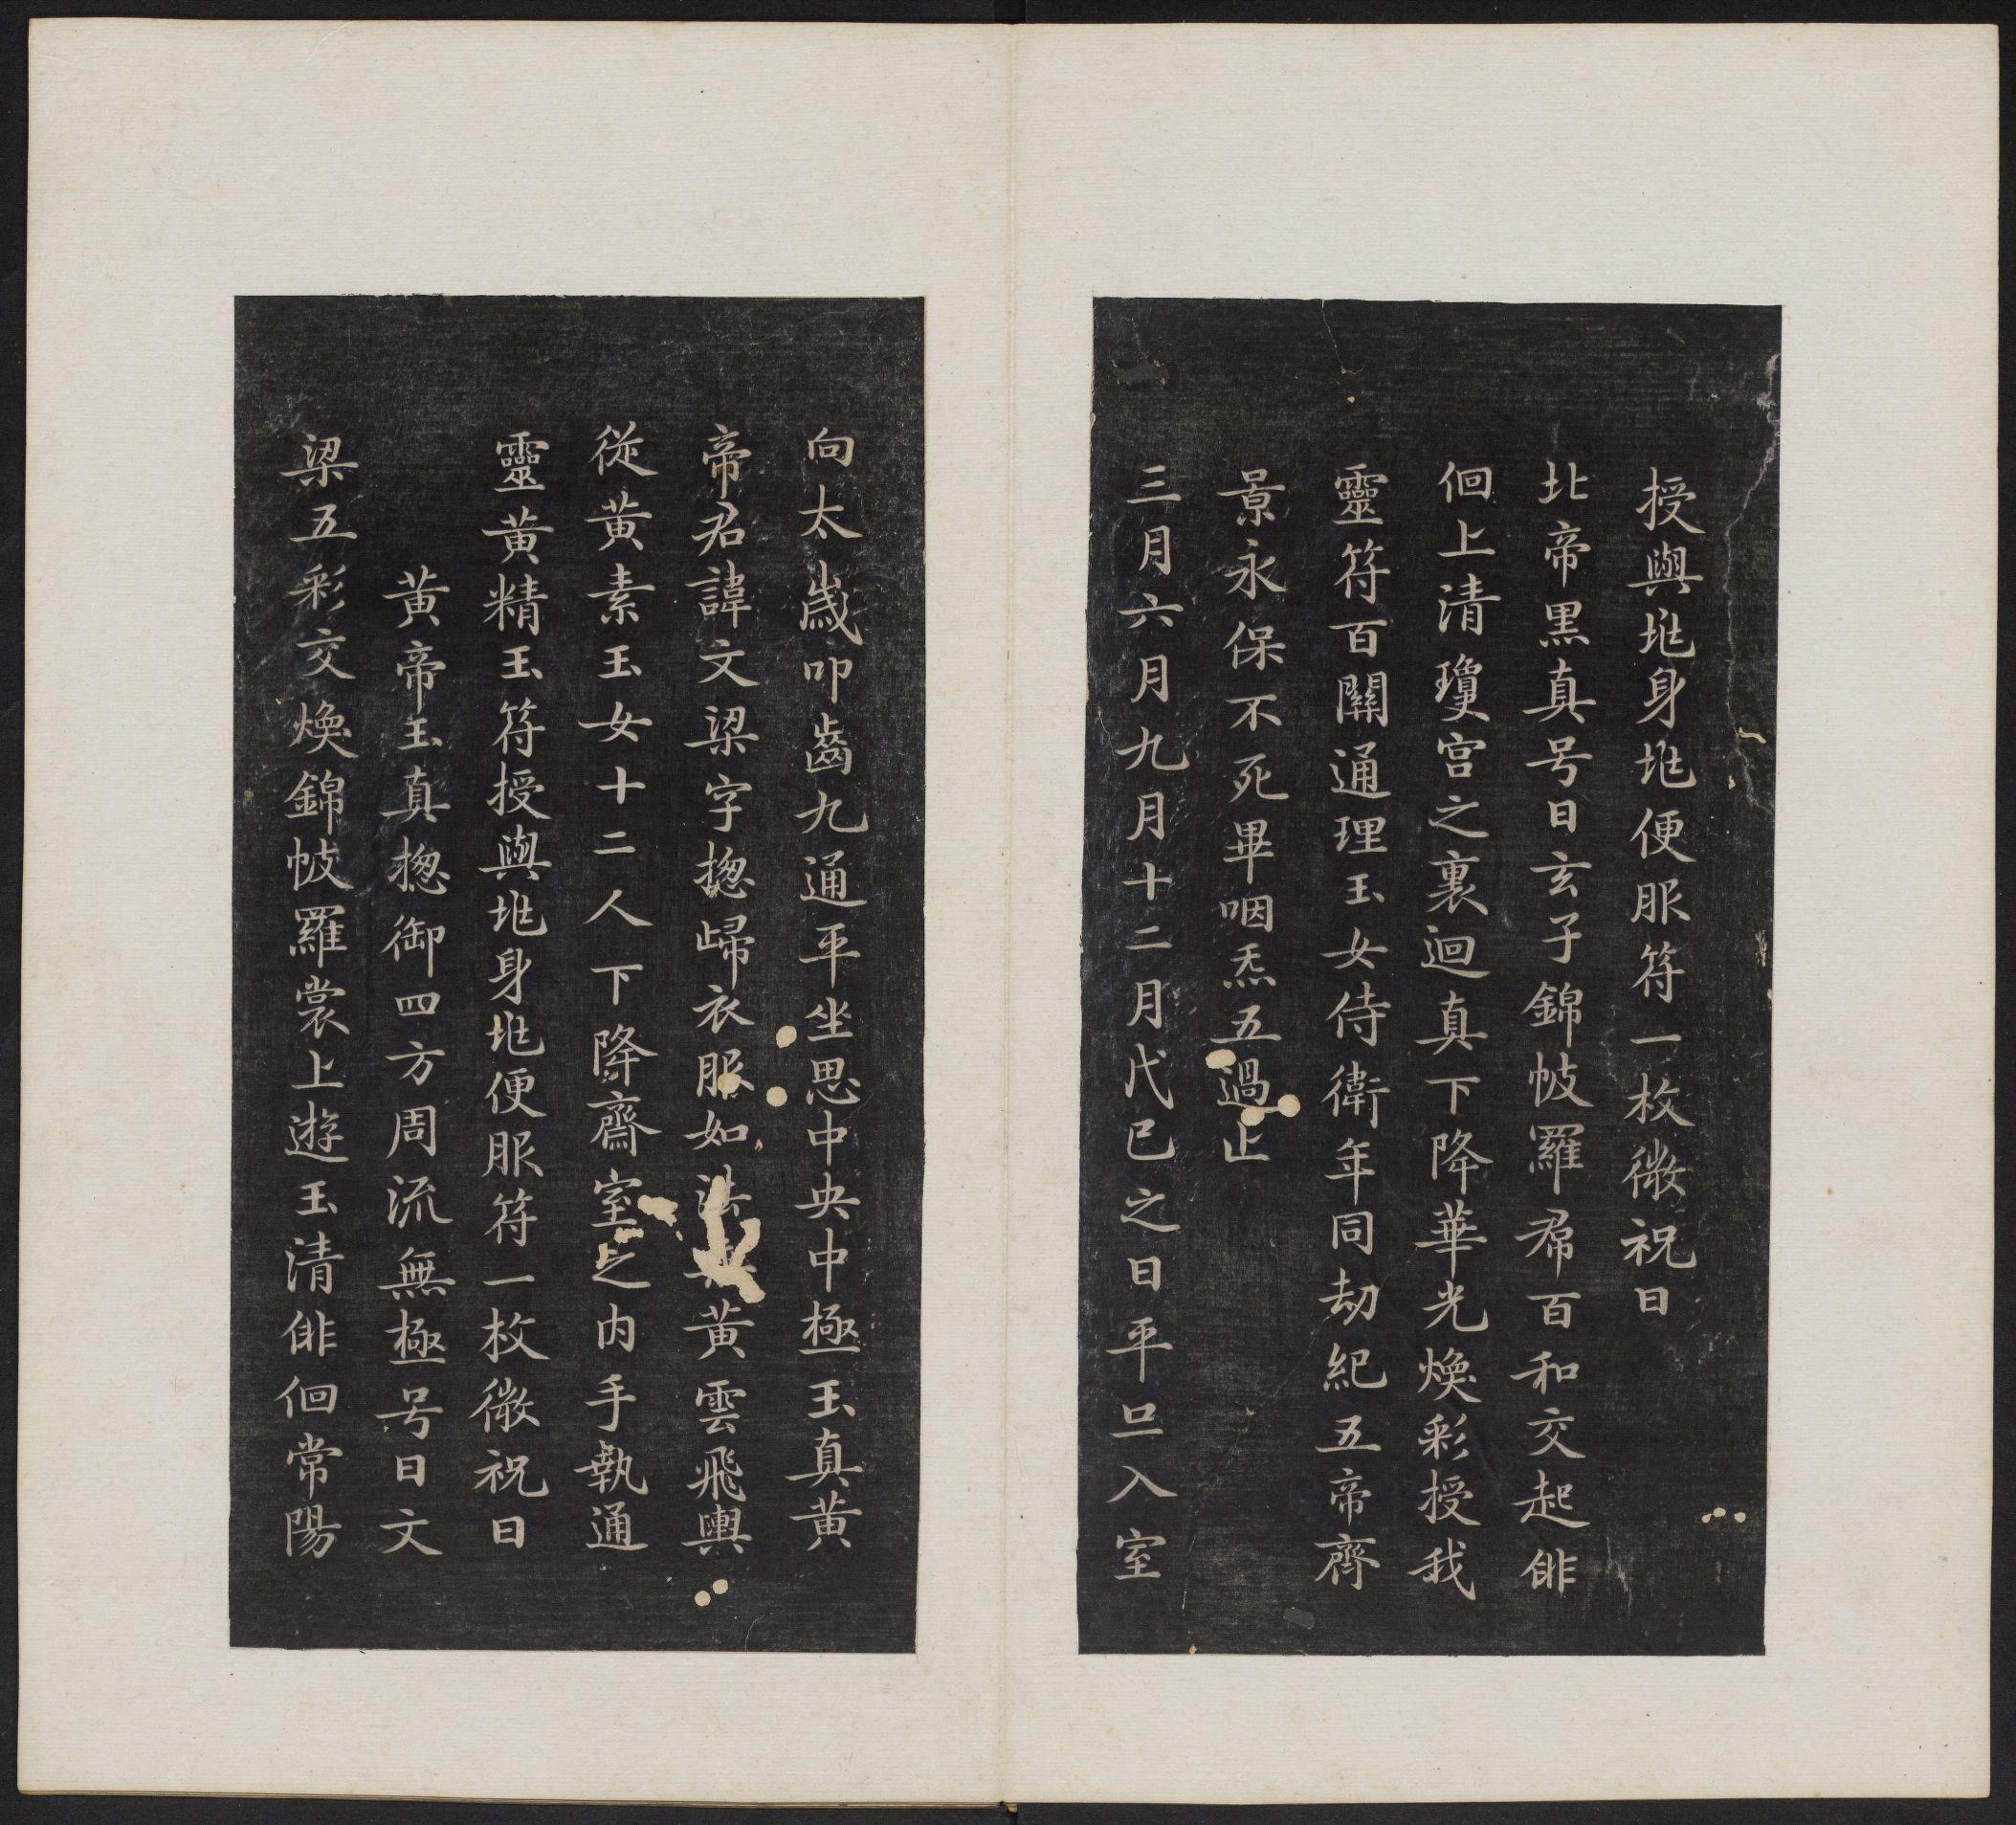 授與埊身埊便服符一枚微祝曰
北帝黑真号曰玄子錦帔羅帬百和交起俳
佪上清瓊宮之裏迴真下降華光煥彩授我
靈符百關通理玉女侍衛年同劫紀五帝齊
景永保不死畢咽炁五過止
三月六月九月十二月戊巳之日平旦入室
向太歲叩齒九通平坐思中央中極玉真黃
帝君諱文梁字揔歸衣服如法乘黃雲飛輿
從黃素玉女十二人下降齋室之内手執通
靈黃精玉符授與埊身埊便服符一枚微祝曰
黃帝玉真揔御四方周流無極号曰文
梁五彩交煥錦帔羅裳上遊玉清俳佪常陽